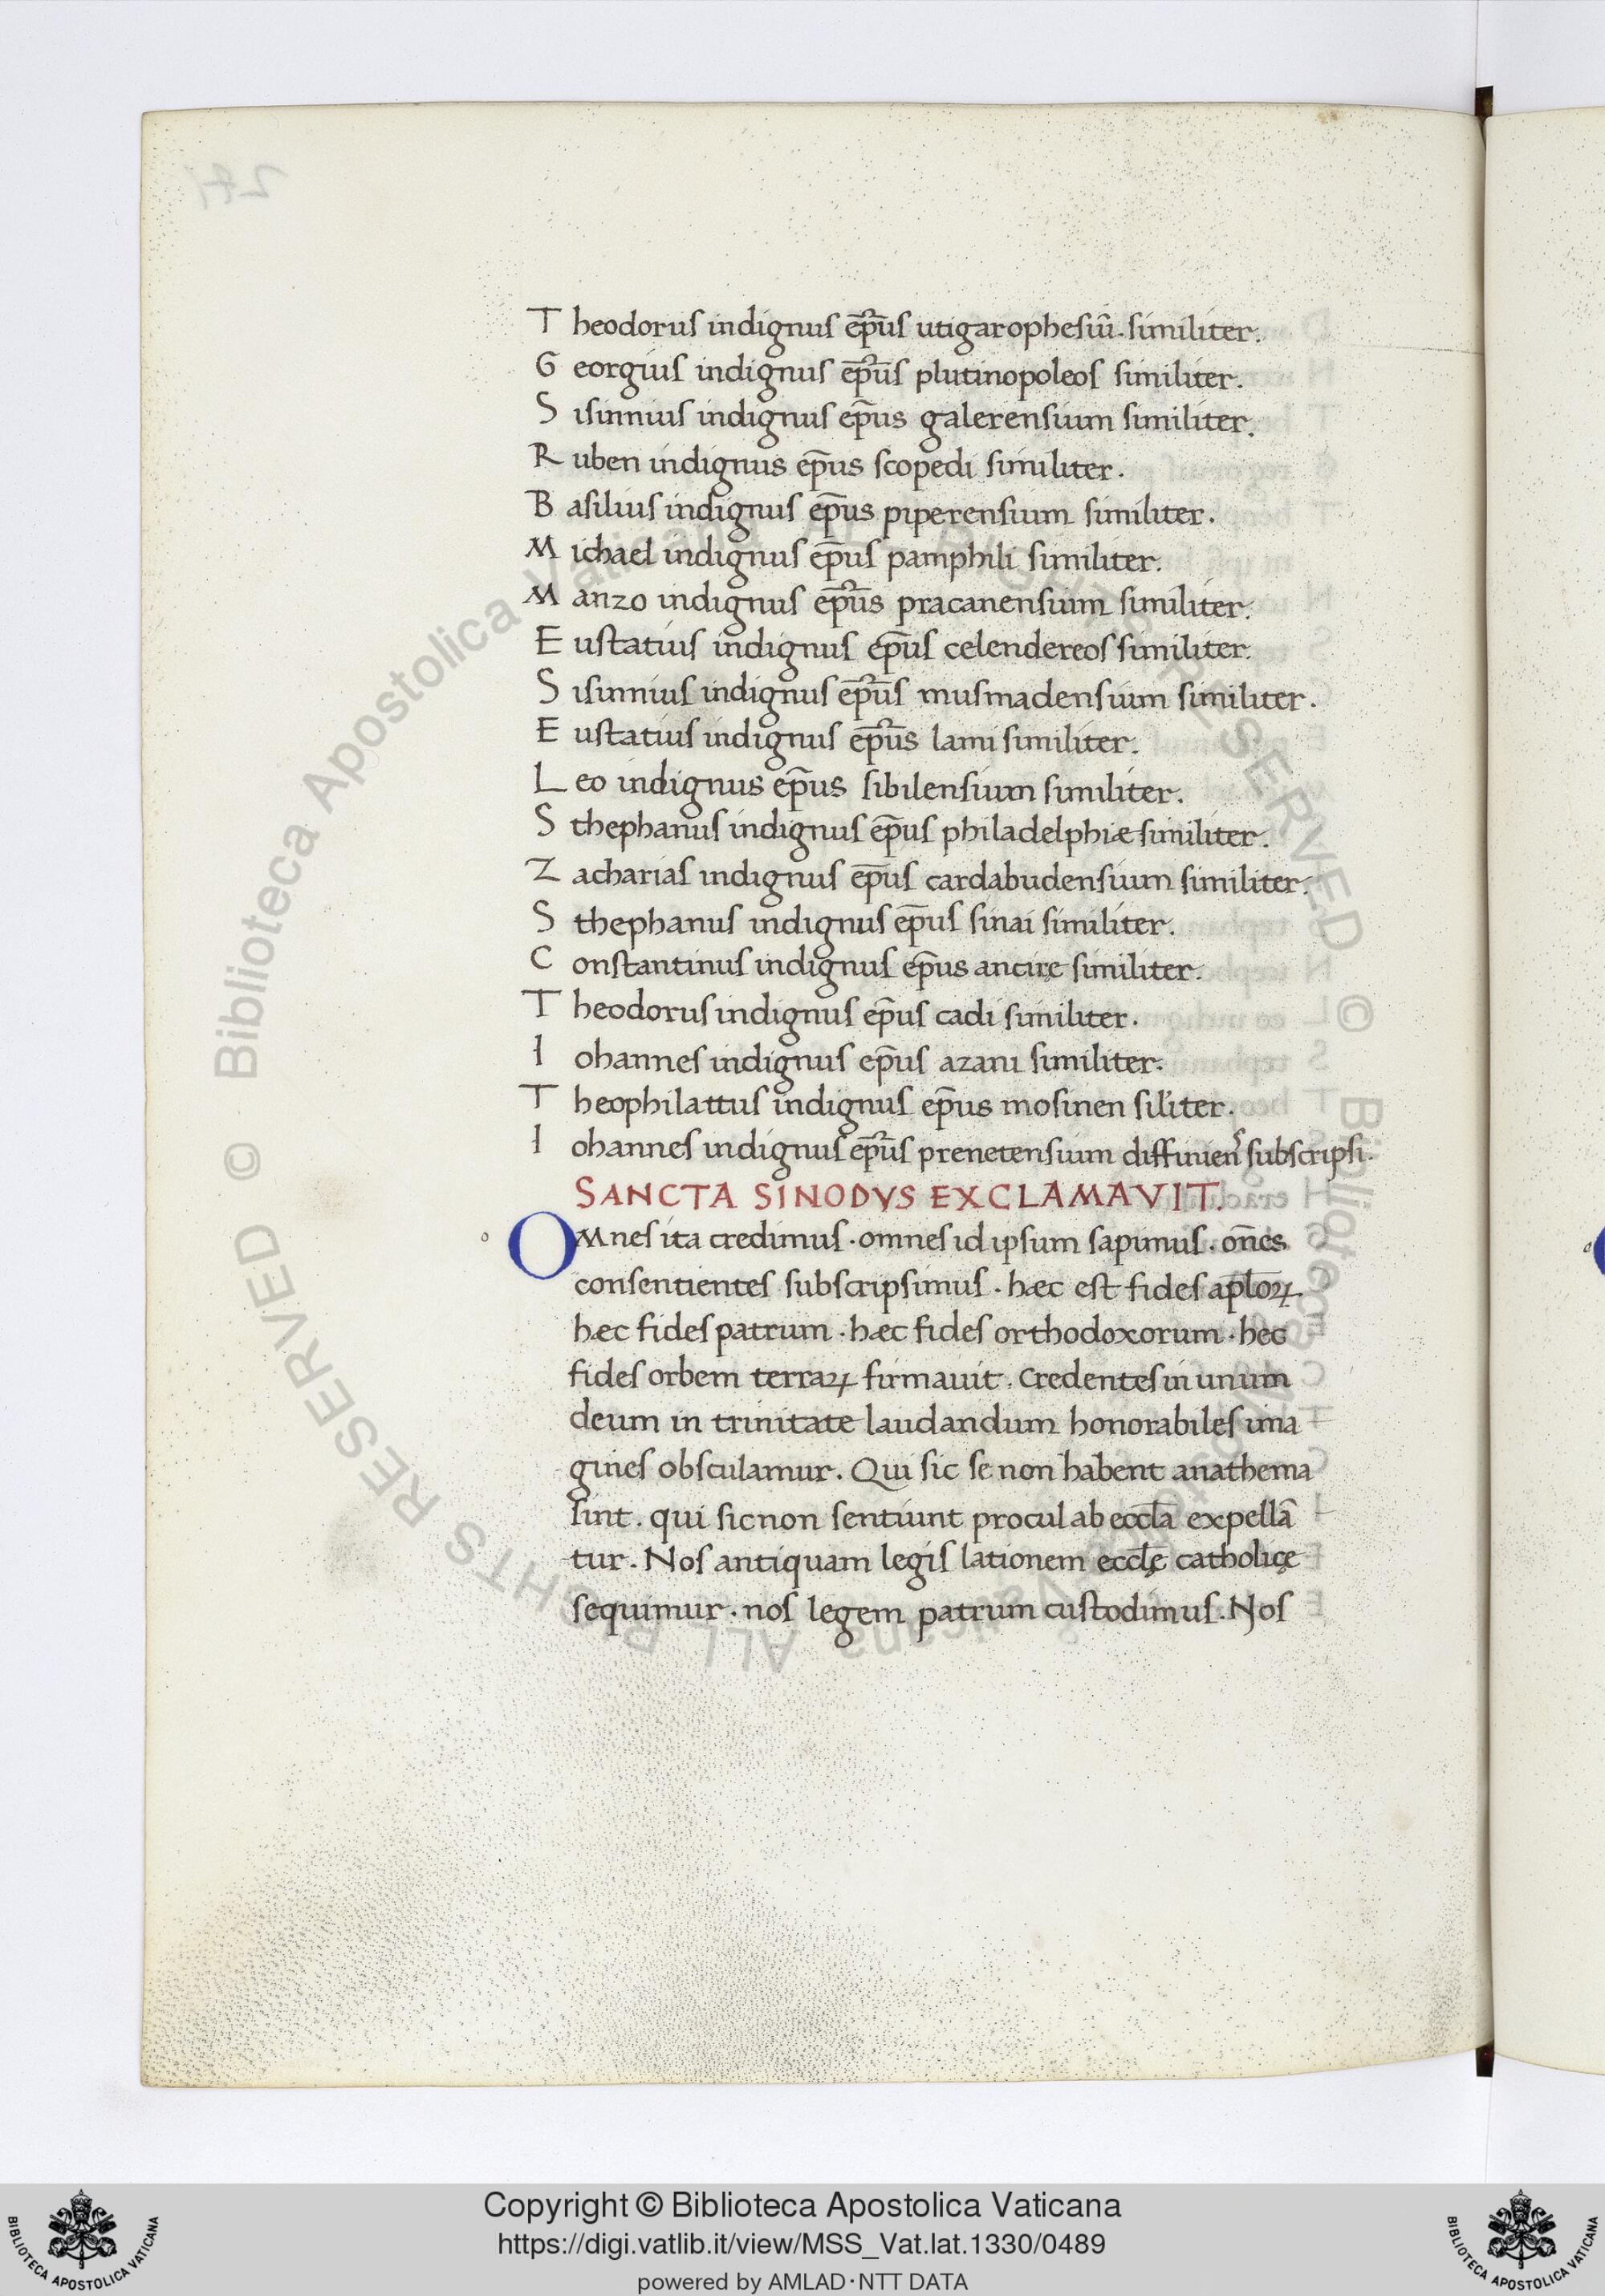 Theodorus indignus ep̄us utigarophesiū. similiter.
Georgius indignus ep̄us plutinopoleos similiter.
Sisinnius indignus ep̄us galerensium similiter.
Ruben indignus ep̄us scopedi similiter.
Basilius indignus ep̄us piperensium similiter.
Michael indignus ep̄us pamphili similiter.
Manzo indignus ep̄us pracanensium similiter.
Eustatius indignus ep̄us celendereos similiter.
Sisinnius indignus ep̄us musmadensium similiter.
Eustatius indignus ep̄us lami similiter.
Leo indignus ep̄us sibilensium similiter.
Sthephanus indignus ep̄us philadelphiæ similiter.
Zacharias indignus ep̄us cardabudensium similiter.
Sthephanus indignus ep̄us sinai similiter.
Constantinus indignus ep̄us ancirę similiter.
Theodorus indignus ep̄us cadi similiter.
Iohannes indignus ep̄us azani similiter.
Theophilattus indignus ep̄us mosinen sil'iter.
Iohannes indignus ep̄us prenetensium diffinienˢ subscripsi.
SANCTA SINODVS EXCLAMAVIT.
o OMnes ita credimus · omnes id ipsum sapimus · om̄es
consentientes subscripsimus · hæc est fides ap̄loꝝ
hæc fides patrum · hæc fides orthodoxorum · hec
fides orbem terraꝝ firmauit. Credentes in unum
deum in trinitate laudandum honorabiles ima
gines obsculamur. Qui sic se non habent anathema
sint. qui sic non sentiunt procul ab eccl̄a expellā
tur. Nos antiquam legis lationem eccl̄ę catholicę
sequimur · nos legem patrum custodimus. Nos
© Biblioteca Apostolica Vaticana ALL RIGHTS RESERVED © Biblioteca Apostolica Vaticana ALL RIGHTS RESERVED
Copyright © Biblioteca Apostolica Vaticana
https://digi.vatlib.it/view/MSS_Vat.lat.1330/0489
powered by AMLAD·NTT DATA
BIBLIOTECA APOSTOLICA VATICANA
BIBLIOTECA APOSTOLICA VATICANA